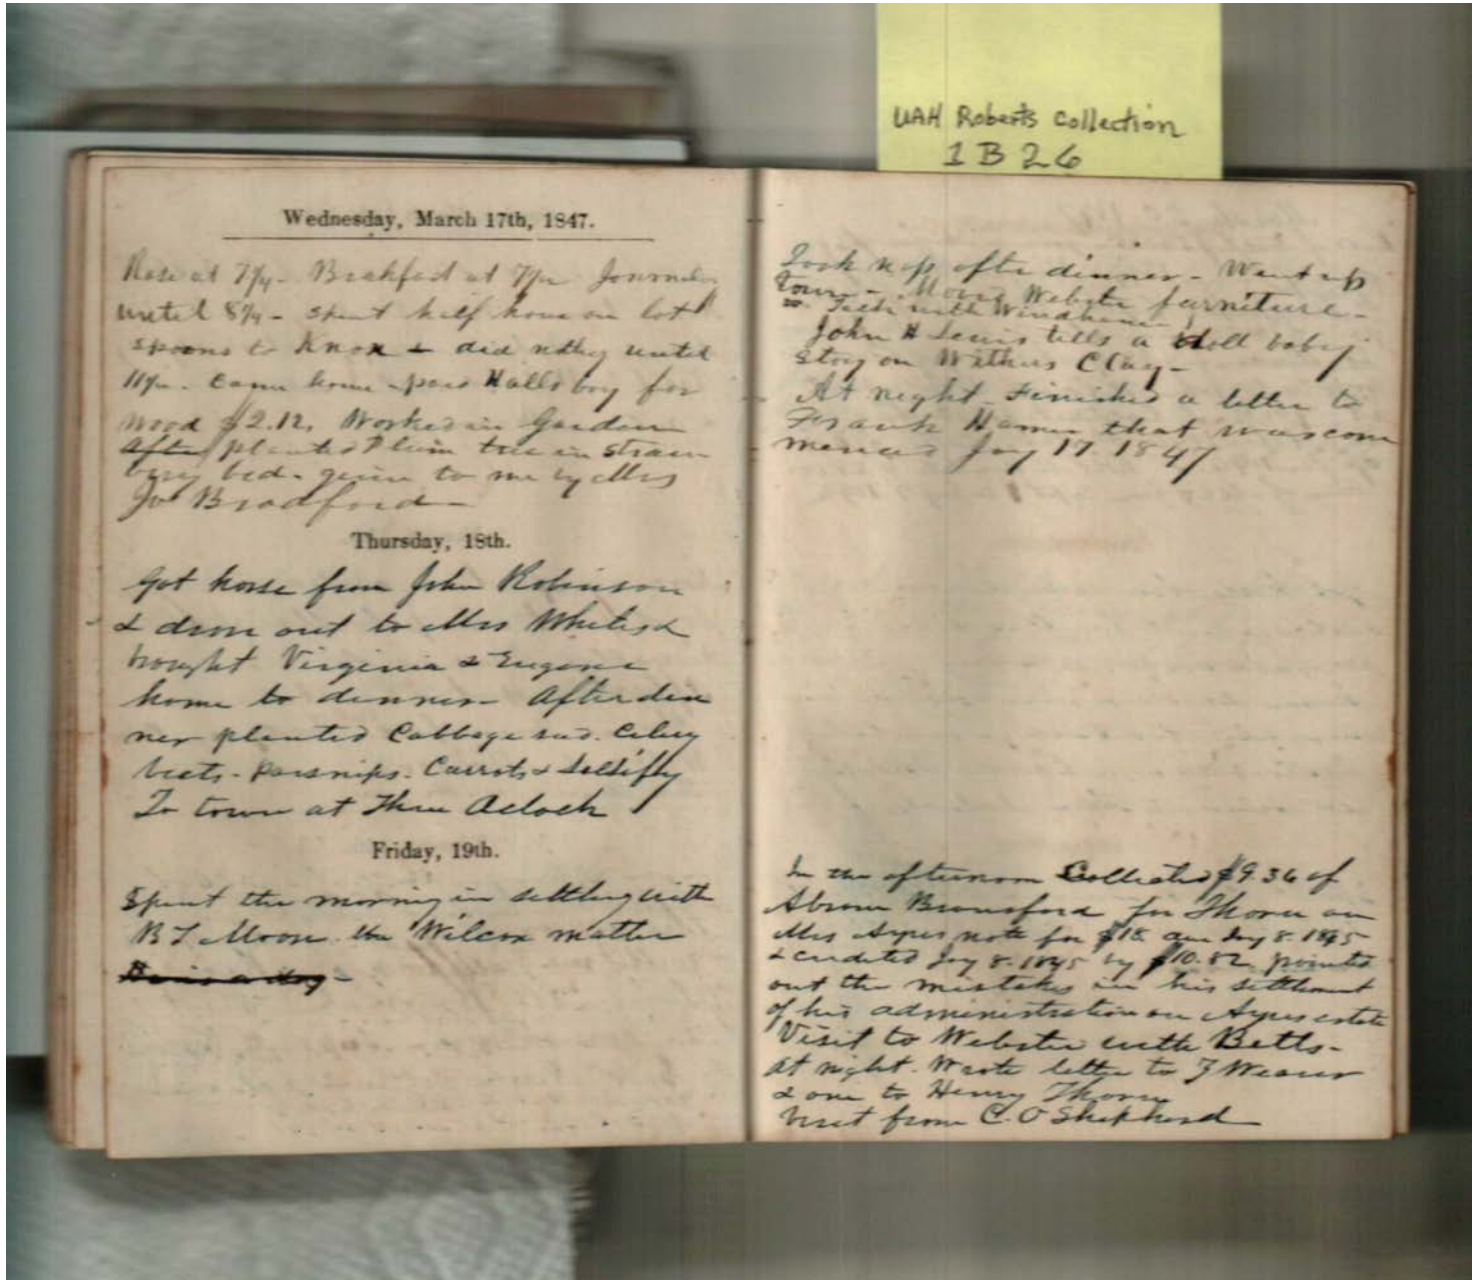 UAH Roberts Collection
1B26
Wednesday, March 17th, 1847.
Rose at 7¼ - Breakfast at 7½
until 8¾ - spent half hour on lot
spoons to Knox & did nothg until
11½. Came home - paid Halls boy for
wood $2.12. Worked in Garden
After planted Plum tree in straw
bery bed - given to me by Mrs
Jo Bradford -
Thursday, 18th.
Got horse from John Robinson
& drove out to Mrs Whites &
brought Virginia & Eugene
home to dinner - After din
ner planted Cabbage sed. Celery
beets - Parsnips. Carrots & Sallsifly
To town at Three Oclock
Friday, 19th.
Spent the morning in settling with
B T Moore the Wilcox matter
Took nap after dinner - Went up
town - Webster furniture -
Talk with
John H Lewis tells a doll baby
story on Withers Clay -
At night - Finished a letter to
Frank that was com
menced Jay 17 1847
In the afternoon Collected $9.36 of
Abram Bransford for Thorn on
Mrs Ayres note for $18 due Jay 8. 1845
& credited Jay 8. 1845 by $10.82 pointed
out the mistakes in his settlement
of his administration on Ayres estate
Visit to Webster with Betts -
At night. Wrote letter to Weaver
& one to Henry Thorn
Visit from C. O Shepherd